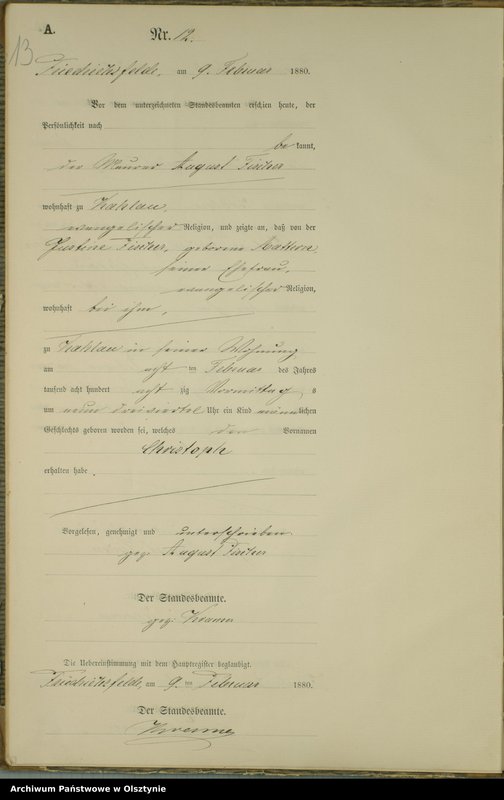 A.
Nr. 12.
13
Friedrichsfelde, am 9. Februar 1880.
Vor dem unterzeichneten Standesbeamten erschien heute, der
Persönlichkeit nach
be kannt,
der Maurer August Fischer
wohnhaft zu
evangelischer Religion, und zeigte an, daß von der
Justine Fischer, geborene
seiner Ehefrau,
evangelischer Religion,
wohnhaft bei ihm,
zu in seiner Wohnung
am acht ten Februar des Jahres
tausend acht hundert acht zig Vormittag s
um neun dreiviertel Uhr ein Kind männlichen
Geschlechts geboren worden sei, welches den Vornamen
Christoph
erhalten habe.
Vorgelesen, genehmigt und unterschrieben
gez. August Fischer
Der Standesbeamte.
gez.
Die Uebereinstimmung mit dem Hauptregister beglaubigt.
Friedrichsfelde, am 9. ten Februar 1880.
Der Standesbeamte.
Archiwum Państwowe w Olsztynie